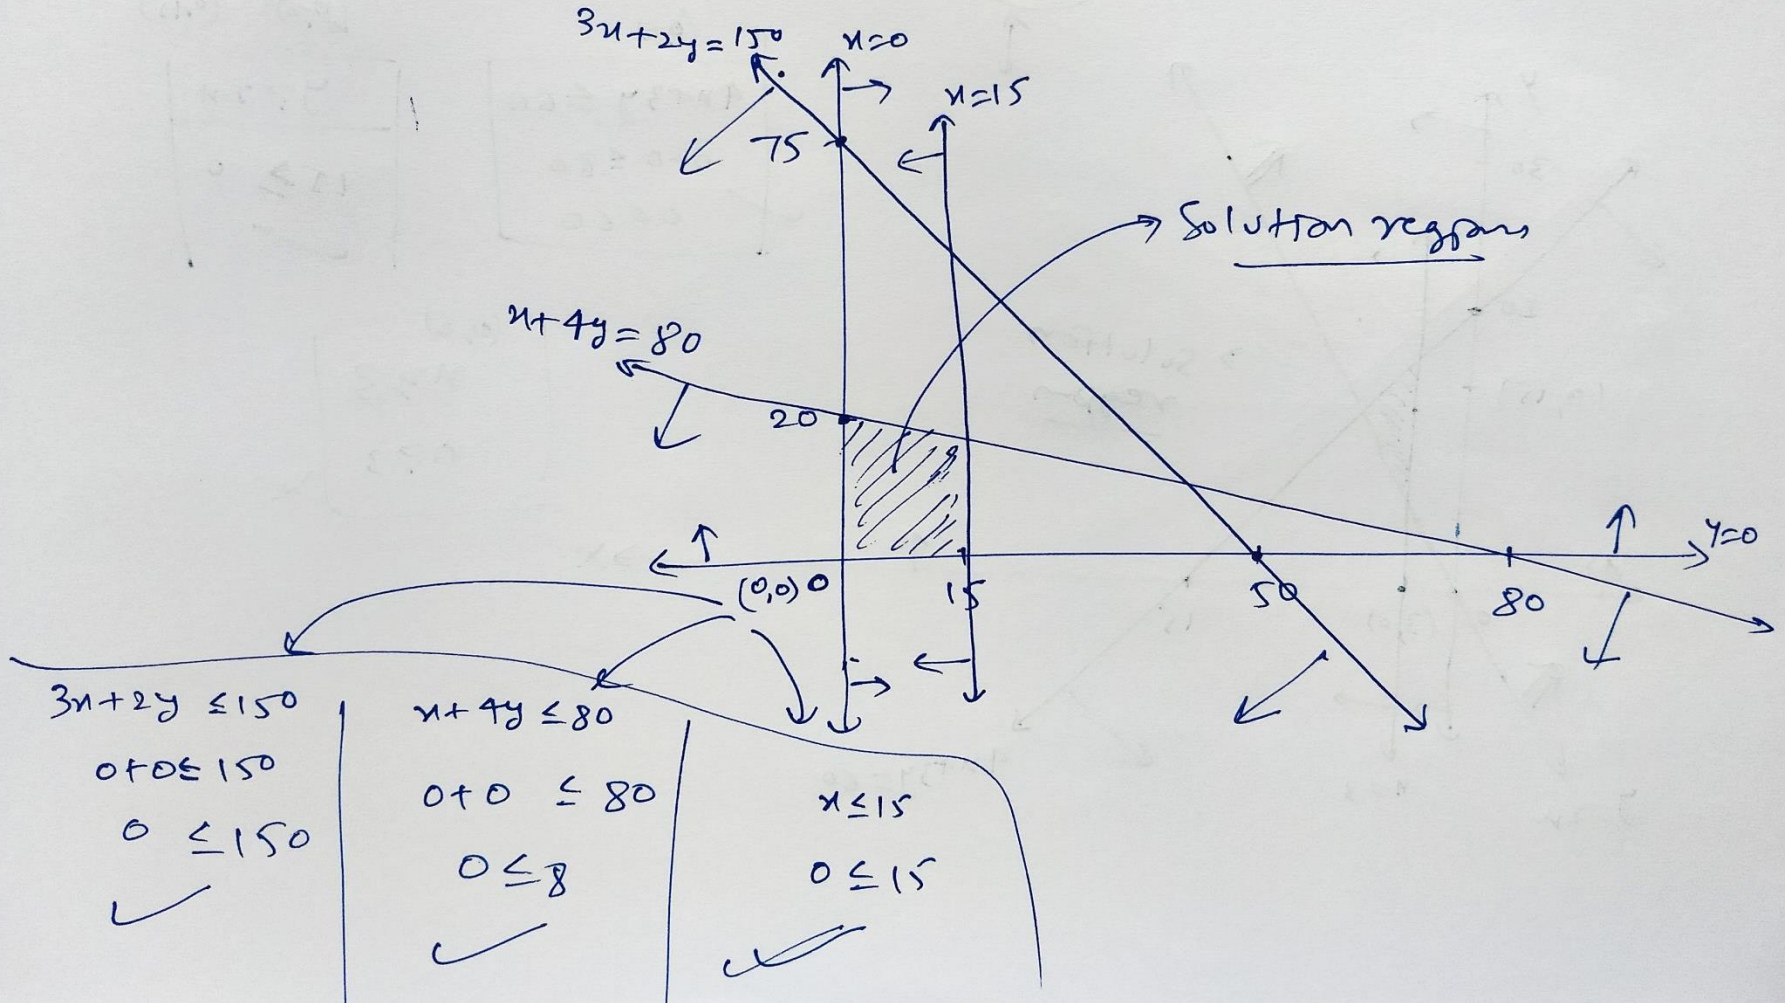 3x+2y=150
x=0
x=15
75
Solution regions
x+4y=80
20
y=0
(0,0) 0
15
50
80
3x+2y ≤150
0+0≤150
0 ≤150
x+4y ≤80
0+0 ≤ 80
0≤8
x≤15
0≤15